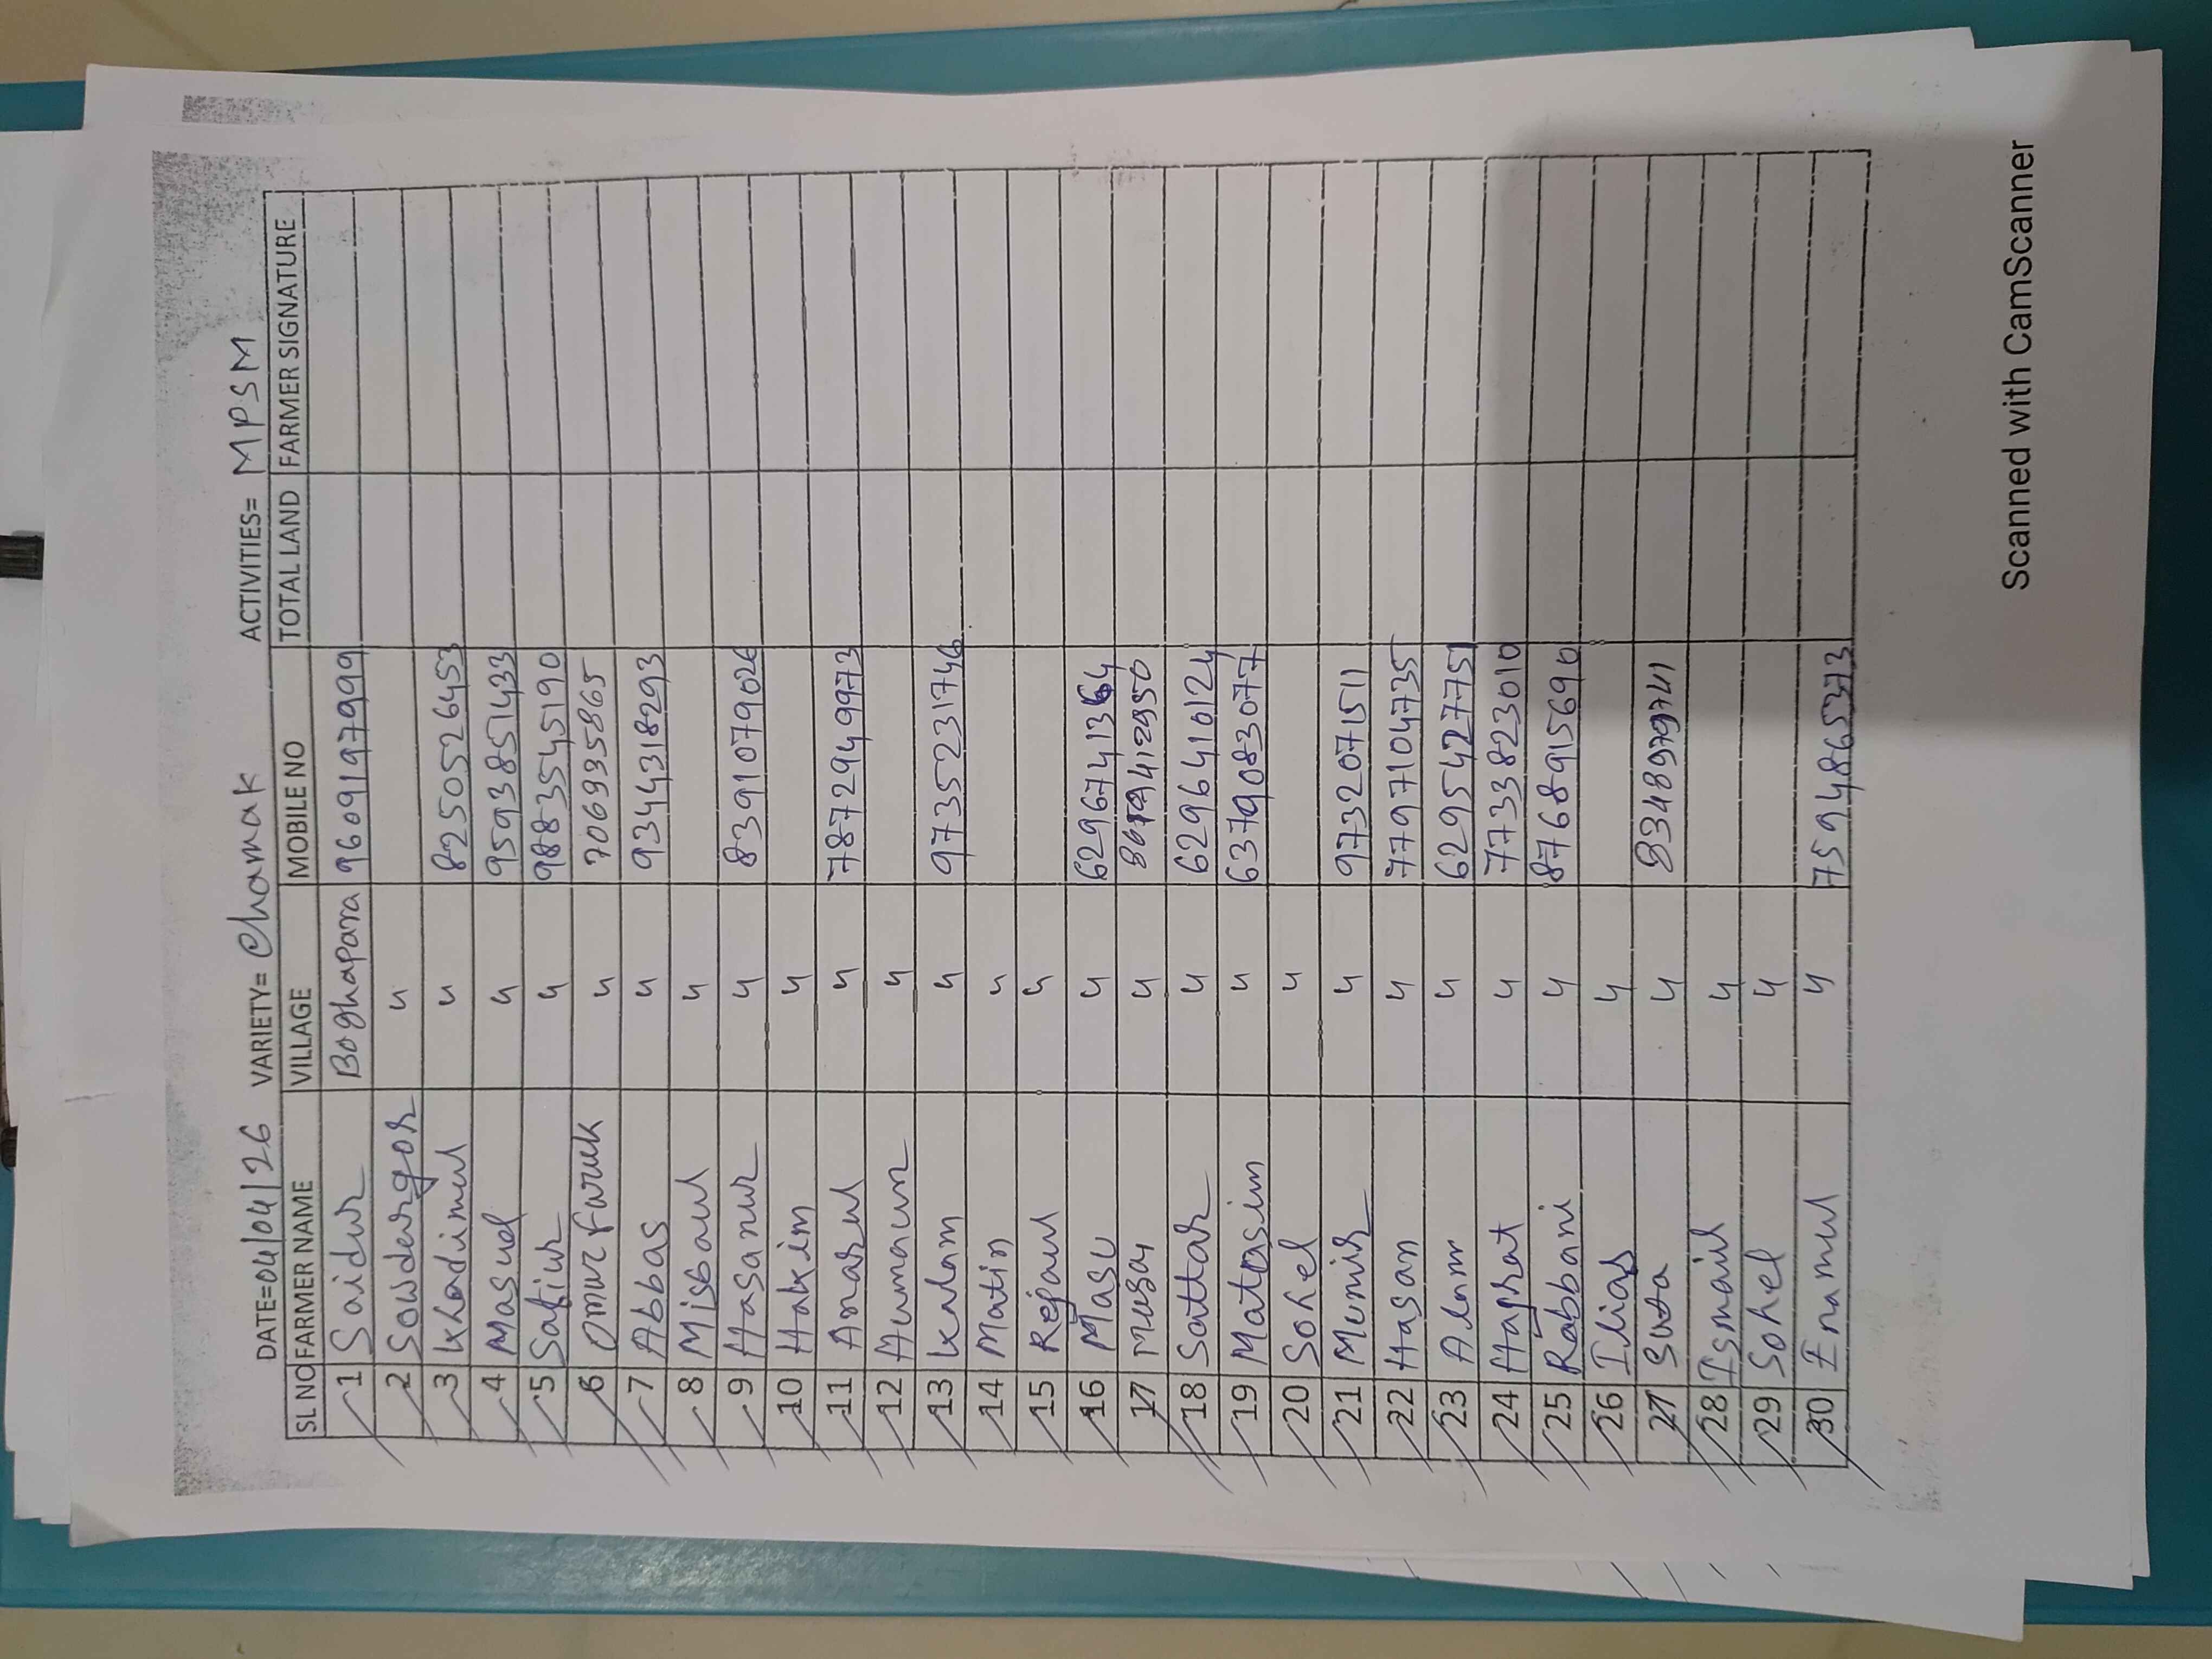 DATE=04/04/26 VARIETY= Chamak ACTIVITIES= MPSM
SL NO FARMER NAME VILLAGE MOBILE NO TOTAL LAND FARMER SIGNATURE
1 Saidur Boghapara 9609197999
2 Sowdergor 〃
3 Khadimul 〃 8250526453
4 Masud 〃 9593851433
5 Safiur 〃 9883545190
6 Omur faruk 〃 7069935865
7 Abbas 〃 9344318293
8 Misbaul 〃
9 Hasanur 〃 8391079026
10 Hakim 〃
11 Anarul 〃 7872949973
12 Humaun 〃
13 Kalam 〃 9735231746
14 Matin 〃
15 Rejaul 〃
16 Masu 〃 6296741364
17 Musa 〃
18 Sattar 〃 6296410124
19 Matasim 〃 6379083077
20 Sohel 〃
21 Munir 〃 9732071511
22 Hasan 〃 7797104735
23 Alam 〃 6295427751
24 Hagrat 〃 7733823010
25 Rabbani 〃 8768915690
26 Ilias 〃
27 Suta 〃
28 Ismail 〃
29 Sohel 〃
30 Enamul 〃 7594865373
Scanned with CamScanner